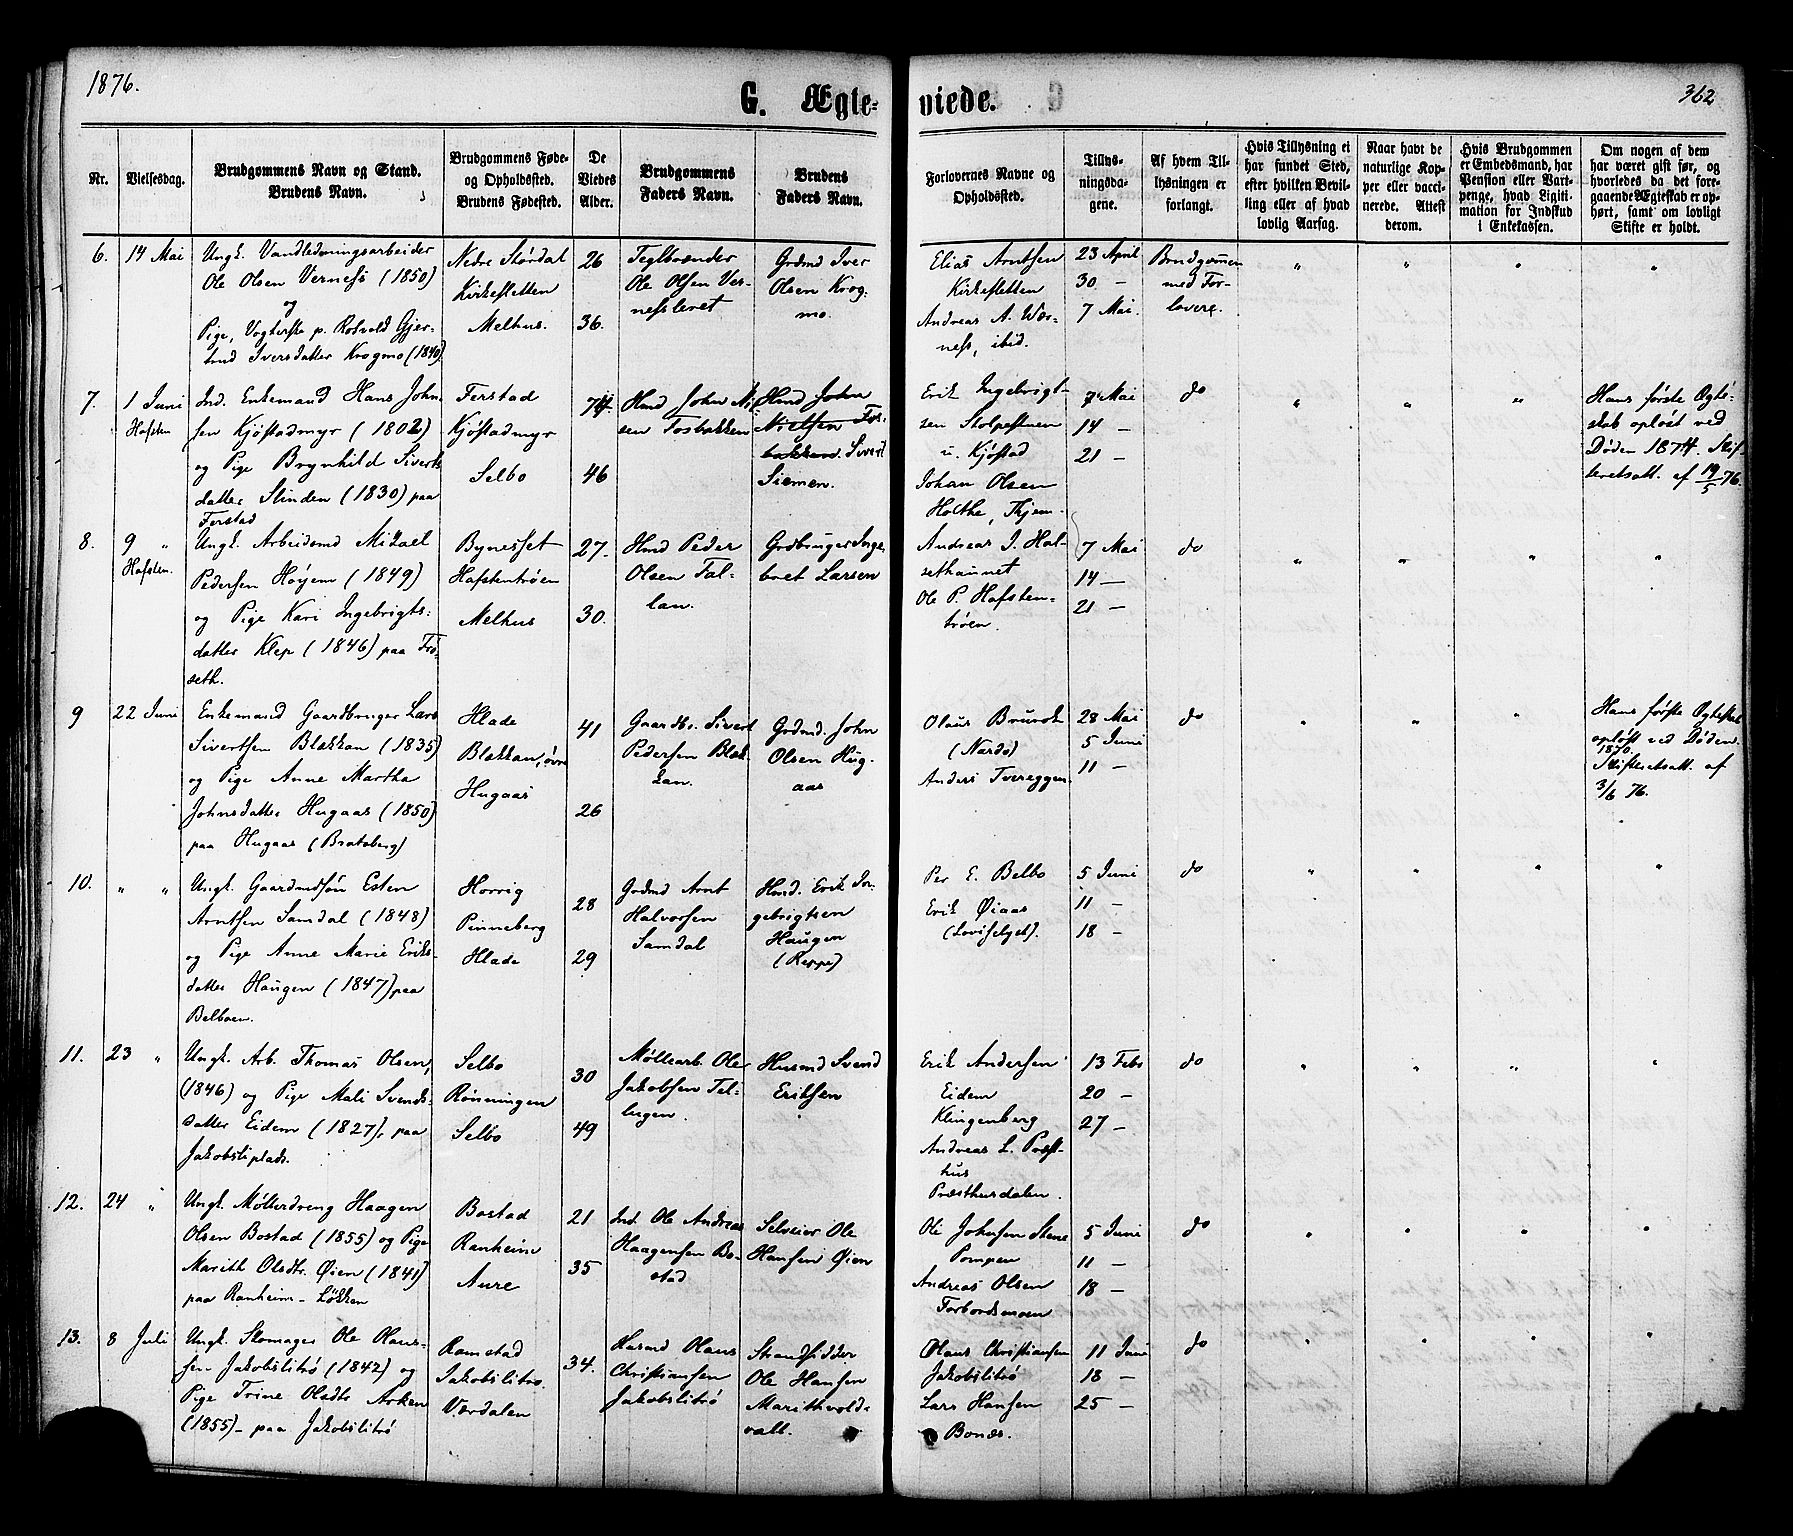 1876.
G. Ægte-
viede.
362
Nr.
Vielsesdag.
Brudgommens Navn og Stand.
Brudens Navn.
Brudgommens Føde-
og Opholdssted.
Brudens Fødested.
De
Viedes
Alder.
Brudgommens
Faders Navn.
Brudens
Faders Navn.
Forlovernes Navne og
Opholdssted.
Tillys-
ningsda-
gene.
Af hvem Til-
lysningen er
forlangt.
Hvis Tillysning ei
har fundet Sted,
efter hvilken Bevil-
ling eller af hvad
lovlig Aarsag.
Naar havt de
naturlige Kop-
per eller vacci-
nerede. Attest
derom.
Hvis Brudgommen
er Embedsmand, har
Pension eller Vart-
penge, hvad Ligiti-
mation for Indskud
i Enkekassen.
Om nogen af dem
har været gift før, og
hvorledes da det fore-
gaaende Ægteskab er op-
hørt, samt om lovligt
Skifte er holdt.
6.
14 Mai
Ungk. Vandledningsarbeider
Ole Olsen Verness (1850)
og
Pige, Vogterske p. Rotvold Gjer-
trud Iversdatter Krogmo (1840)
Nedre Stördal
Kirkesletten
Melhus.
26
36.
Teglbrænder
Ole Olsen Ver-
nesslevet
Grdmd Iver
Olsen Krog-
mo.
Elias Arntsen
Kirkesletten
Andreas A. Wær-
ness, ibid.
23 April
30. —
7 Mai.
Brudgommen
med For-
lovere.
7.
1 Juni
Hofsten
Ind. Enkemand Hans John-
sen Kjöstadmyr (1802)
og Pige Brynhild Siverts-
datter Slinden (1830) paa
Ferstad
Ferstad
Kjöstadmyr
Selbo
74.
46
Hmd John Ni-
sen Fosbakken
Hmd John
Nielsen Fos-
bakken. Sivert
Siemen.
Erik Ingebrigt-
sen Stolpestuen
u. Kjöstad
Johan Olsen
Holthe, Thjem-
7 Mai
14 —
21 —
do
Hans første Ægte-
skab opløst ved
Døden 1874. Skif-
teretsatt. af 19/5 76.
8.
9 "
Hofsten.
Ungk. Arbeidsmd Mikael
Pedersen Höyem (1849)
og Pige Kari Ingebrigts-
datter Klep (1846) paa Frö-
seth.
Bynesset
Hafstentröen
Melhus
27.
30.
Hmd Peder
Olsen Tal-
lan.
Grdbruger Inge-
bret Larsen
Andreas J. Hal-
sethaunet
Ole P. Hafsten-
tröen.
7 Mai
14 —
21 —
do
9
22 Juni
Enkemand Gaardbruger Lars
Sivertsen Blækkan (1835)
og Pige Anne Martha
Johnsdatter Hugaas (1850)
paa Hugaas (Bratsberg)
Hlade
Blækkan, övre
Hugaas
41
26
Gaardbr. Sivert
Pedersen Blæk-
kan.
Grdmd. John
Olsen Hug-
aas
Olaus Brurok
(Nardo)
Anders Tvereggen.
28 Mai
5 Juni
11 —
do
Hans første Ægteskab
opløst ved Døden
1870.
Skifteretsatt. af
3/6 76.
10.
" "
Ungk. Gaardmdsön Esten
Arntsen Samdal (1848)
og Pige Anne Marie Eriks-
datter Haugen (1847) paa
Belboen.
Horrig
Pinneberg
Hlade
28
29
Grdmd Arnt
Halvorsen
Samdal
Hmd. Erik In-
gebrigtsen
Haugen
(Reppe)
Per E. Belbo
Erik Øiaas
(Loviselyst).
5 Juni
11 —
18 —
do
11.
23 "
Ungk. Arb. Thomas Olsen,
(1846) og Pige Mali Svends-
datter Eidem (1827), paa
Jakobsliplads.
Selbo
Rönningen
Selbo
30
49
Møllearb. Ole
Jakobsen Tel-
lugen.
Husmd Svend
Eriksen
Erik Andersen
Eidem
Klingenberg
Andreas L. Præst-
hus
Præsthusdalen.
13 Febr
20 —
27 —
do
12.
24 "
Ungk. Møllerdreng Haagen
Olsen Bostad (1855) og Pige
Marith Olsdtr. Øien (1841)
paa Ranheim - Løkken
Bostad
Ranheim
Aure
21
35
Ind. Ole Andreas
Haagensen Bo-
stad
Selveier Ole
Hansen Øien
Ole Johnsen Stene
Pompen
Andreas Olsen
Forbordsmoen
5 Juni
11 —
18 —
do
13.
8 Juli
Ungk. Skomager Ole Olaus-
sen Jakobslitrö (1842) og
Pige Trine Olsdtr Aaken
(1855) - paa Jakobslitrö
Ramstad
Jakobslitrö.
Værdalen
34.
Husmd Olaus
Christiansen
Jakobslitrö
Strandsidder
Ole Hansen
Marithvold-
vall.
Olaus Christiansen
Jakobslitrö
Lars Hansen
Bonæs.
11 Juni
18 —
25 —
do